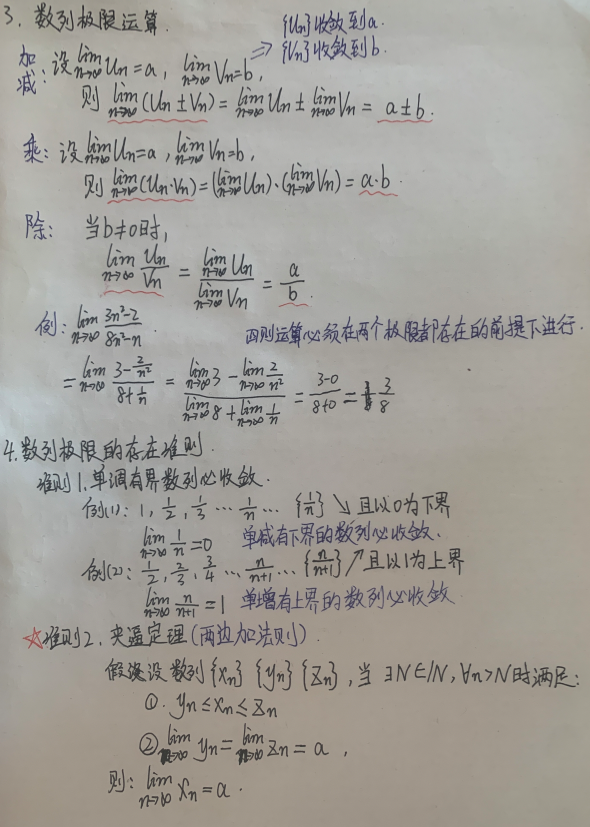 3. 数列极限运算.
{Un}收敛到a.
{Vn}收敛到b.
加减: 设 lim_{n→∞} Un = a, lim_{n→∞} Vn = b, ⇒
则 lim_{n→∞} (Un ± Vn) = lim_{n→∞} Un ± lim_{n→∞} Vn = a ± b.
乘: 设 lim_{n→∞} Un = a, lim_{n→∞} Vn = b,
则 lim_{n→∞} (Un·Vn) = (lim_{n→∞} Un)·(lim_{n→∞} Vn) = a·b.
除: 当b≠0时,
lim_{n→∞} Un/Vn = lim_{n→∞} Un / lim_{n→∞} Vn = a/b.
例: lim_{n→∞} (3n²-2)/(8n²-n). 四则运算必须在两个极限都存在的前提下进行.
= lim_{n→∞} (3 - 2/n²)/(8 + 1/n) = (lim_{n→∞} 3 - lim_{n→∞} 2/n²)/(lim_{n→∞} 8 + lim_{n→∞} 1/n) = (3-0)/(8+0) = 3/8
4. 数列极限的存在准则.
准则1. 单调有界数列必收敛.
例(1): 1, 1/2, 1/3 … 1/n … {1/n} ↘ 且以0为下界
lim_{n→∞} 1/n = 0 单减有下界的数列必收敛.
例(2): 1/2, 2/3, 3/4 … n/(n+1) … {n/(n+1)} ↗ 且以1为上界
lim_{n→∞} n/(n+1) = 1 单增有上界的数列必收敛
☆准则2. 夹逼定理(两边加法则).
假设设数列{Xn} {yn} {Zn}, 当 ∃N∈IN, ∀n>N时满足:
①. yn ≤ xn ≤ zn
② lim_{n→∞} yn = lim_{n→∞} zn = a,
则: lim_{n→∞} xn = a.